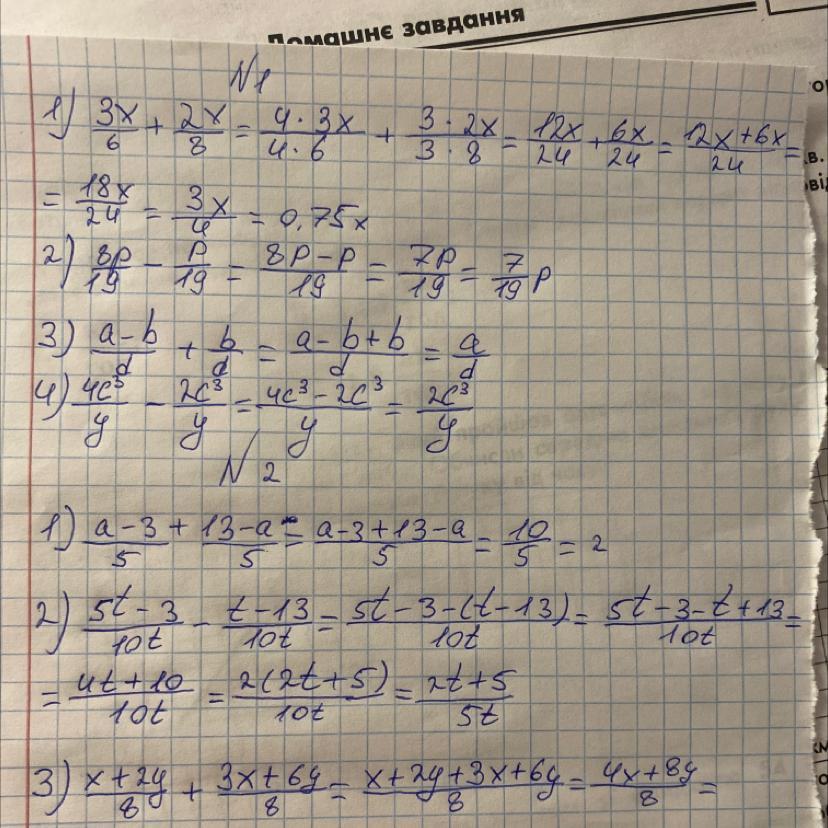 Домашнє завдання
N1
1) 3x/6 + 2x/8 = 4·3x/4·6 + 3·2x/3·8 = 12x/24 + 6x/24 = 12x+6x/24 =
= 18x/24 = 3x/4 = 0,75x
2) 8p/19 - p/19 = 8p-p/19 = 7p/19 = 7/19 p
3) a-b/d + b/d = a-b+b/d = a/d
4) 4c³/y - 2c³/y = 4c³-2c³/y = 2c³/y
N2
1) a-3/5 + 13-a/5 = a-3+13-a/5 = 10/5 = 2
2) 5t-3/10t - t-13/10t = 5t-3-(t-13)/10t = 5t-3-t+13/10t =
= 4t+10/10t = 2(2t+5)/10t = 2t+5/5t
3) x+2y/8 + 3x+6y/8 = x+2y+3x+6y/8 = 4x+8y/8 =